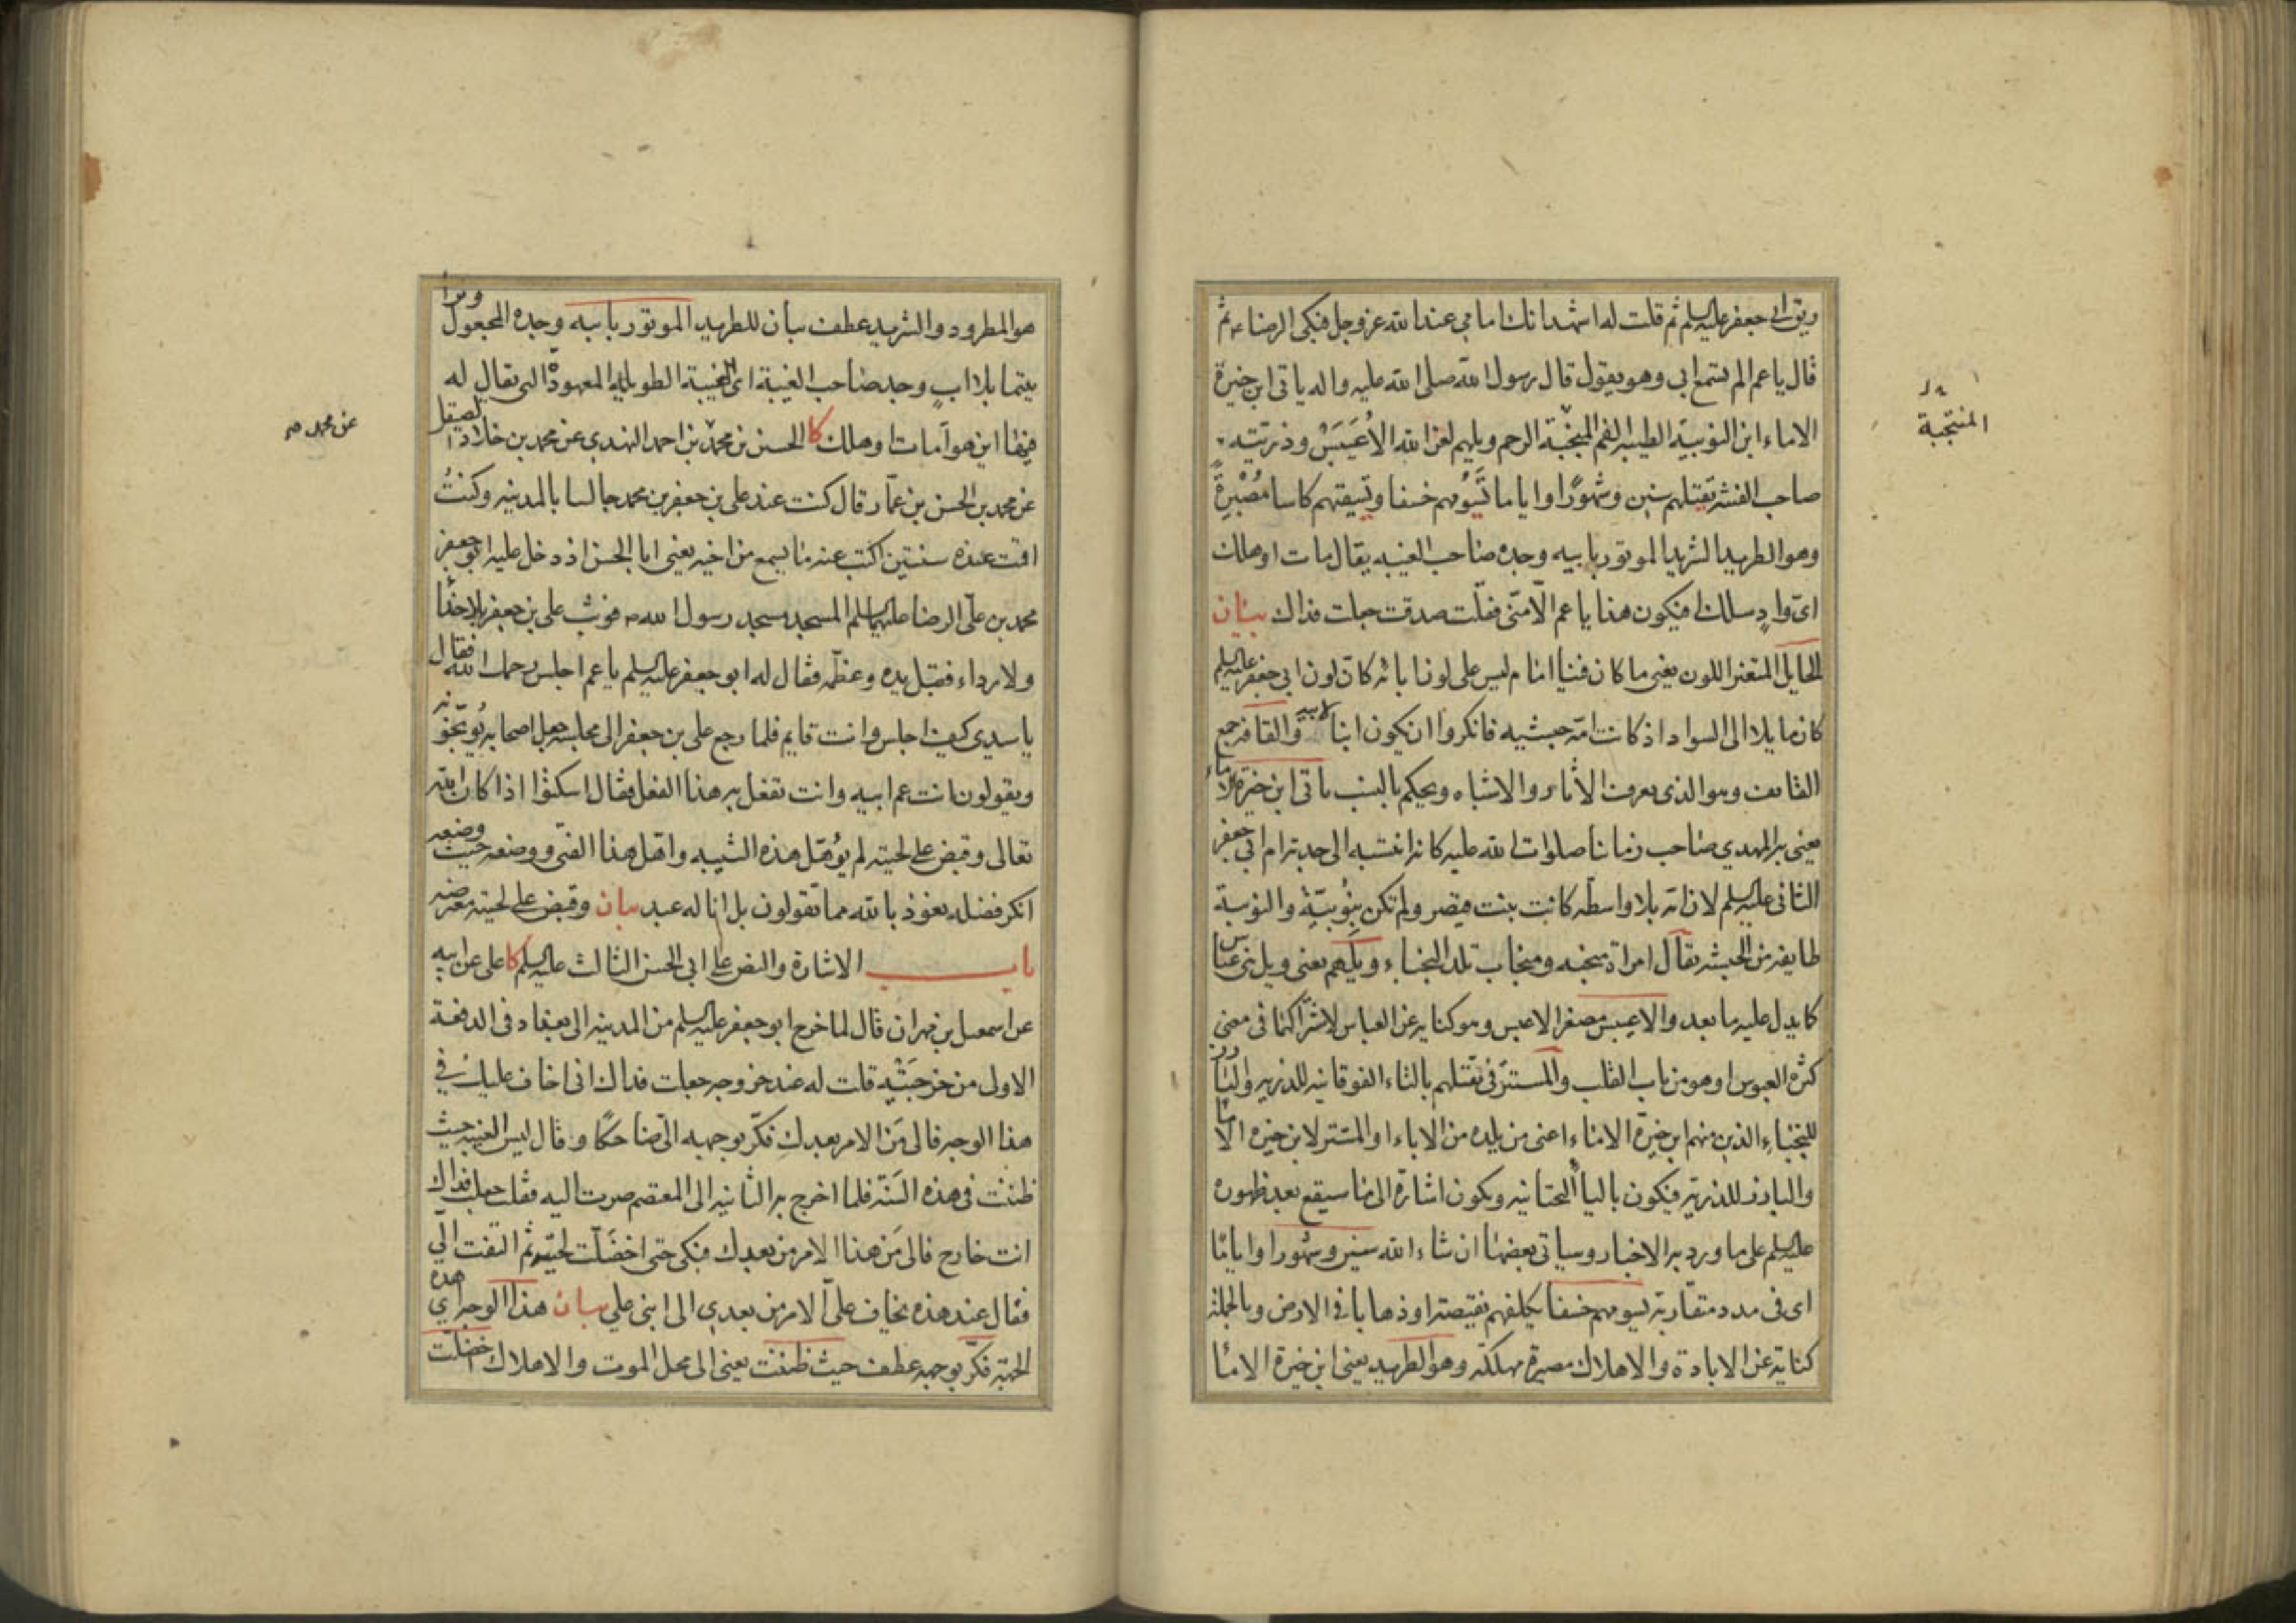 ريق ابي جعفر عليه السلم ثم قلت له اشهد انك امامي عند الله عز وجل فبكى الرضا ء ثم
قال يا عم الم تسمع ابي وهو يقول قال رسول الله صلى الله عليه واله ياتي ابن خيرة
الاماء ابن النوبية الطيبة الفم المنجبة الرحم ويلهم لعن الله الاُعَيبَسْ وذريته
المنتجبة
صاحب الفتنة تقتلهم سنين وشهورًا واياما تَسُومهم خسفا وتسقيهم كاسا مُصْبِرةً
وهو الطريد الشريد الموتور بابيه وجده صاحب الغيبه يقال مات او هلك
اىّ وادٍ سلك افيكون هذا يا عم الا منّى فقلت صدقت جعلت فداك بيان
الحايل المتغير اللون يعنى ما كان فينا امام ليس على لوننا بانه كان لون ابي جعفر عليه السلم
كان مايلا الى السواد اذ كانت امّه حبشيه فانكروا ان يكون ابنا لابيه والقافه جمع
القايف وهو الذى يعرف الاثار والاشباه ويحكم بالنسب ياتى ابن خيرة الاماء
يعنى به المهدي صاحب زماننا صلوات الله عليه كانه انتسبه الى جدته ام ابي جعفر
الثانى عليه السلم لان امّه بلا واسطه كانت بنت قيصر ولم تكن بِنُوبيّةٍ والنوبية
طايفة من الحبش يقال امراة منجبه ومنجاب تلد النجباء ويلهم يعنى ويل بنى عباس
كما يدل عليه ما بعده والاعيبس مصغر الاعبس وهو كنايه عن العباس لاشتراكهما فى معنى
كثرة العبوس او هو من باب القلب والمستتر فى تقتلهم بالتاء الفوقانيه للذريه والبارز
للنجباء الذين منهم ابن خيرة الاماء اعنى من يلده من الاباء او المستتر لابن خيرة الاماء
والبارز للذرية فيكون بالياء التحتانيه ويكون اشارة الى ما سيقع بعد ظهوره
عليه السلم على ما ورد به الاخبار وسياتى بعضها ان شاء الله سنين وشهورا واياما
اى فى مدد متقاربة يسومهم خسفا يكلفهم نقيصة او ذهابا فى الارض وبالجملة
كناية عن الابادة والاهلاك مصبرة مهلكة وهو الطريد يعنى ابن خيرة الاماء
هو المطرود والشريد عطف بيان للطريد الموتور بابيه وجده المجعول وترا
يتيما بلا ابٍ وجد صاحب الغيبة اى الغيبة الطويلة المعهودة التى يقال له
فيها اين هو أمات او هلك كا الحسين بن محمد بن احمد النهدي عن محمد بن خلاد الصيقل
عن محمد صح
عن محمد بن الحسن بن عمّار قال كنت عند على بن جعفر بن محمد جالسا بالمدينه وكنتُ
اقمت عنده سنتين اكتب عنه ما يسمع من اخيه يعنى ابا الحسن اذ دخل عليه ابو جعفر
محمد بن علىّ الرضا عليهما السلم المسجد مسجد رسول الله ص فوثب على بن جعفر بلا حذاء
ولا رداء فقبّل يده وعظّمه فقال له ابو جعفر عليه السلم يا عم اجلس رحمك الله فقال
يا سيدى كيف اجلس وانت قايم فلما رجع على بن جعفر الى مجلسه جعل اصحابه يُوبّخونه
ويقولون انت عم ابيه وانت تفعل به هذا الفعل فقال اسكتوا اذا كان الله
تعالى وقبض على لحيته لم يؤهّل هذه الشيبه واهّل هذا الفتى ووضعه حيث وضعه
انكر فضله نعوذ بالله مما تقولون بل انا له عبد بيان وقبض على لحيته معترضه
باب الاشارة والنص على ابي الحسن الثالث عليه السلم كا على عن ابيه
عن اسمعيل بن مهران قال لما خرج ابو جعفر عليه السلم من المدينه الى بغداد فى الدفعة
الاولى من خرجَتَيْه قلت له عند خروجه جعلت فداك انى اخاف عليك فى
هذا الوجه فالى مَن الامر بعدك فكرّ بوجهه الىّ ضاحكًا وقال ليس الغيبه حيث
ظننت فى هذه السَنَة فلما اخرج به الثانيه الى المعتصم صرت اليه فقلت جعلت فداك
انت خارج فالى مَن هذا الامر من بعدك فبكى حتى اخضَلّت لحيته ثم التفت الىّ
فقال عند هذه يخاف علىّ الامر من بعدي الى ابنى على بيان هذا الوجه اى هذه
الجهة فكرّ بوجهه عطف حيث ظننت يعنى الى محل الموت والاهلاك اخضلّت